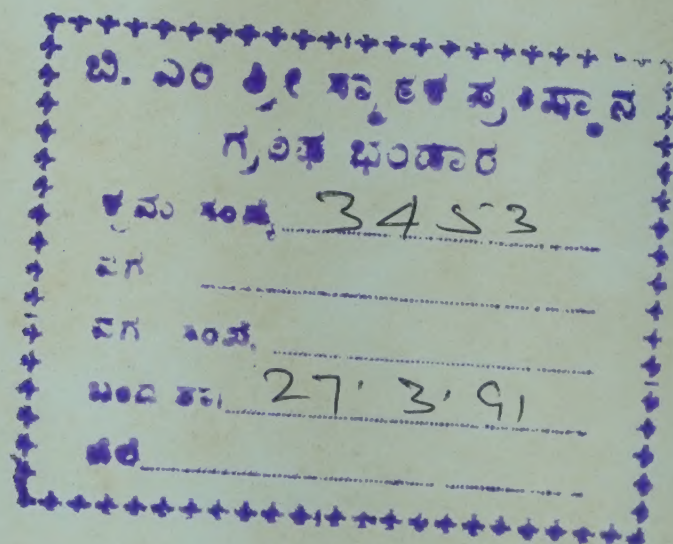 ಬಿ. ಎಂ ಶ್ರೀ ಸ್ಮಾರಕ ಪ್ರತಿಷ್ಠಾನ
ಗ್ರಂಥ ಭಂಡಾರ
ಕ್ರಮ ಸಂಖ್ಯೆ 3453
ವರ್ಗ
ವರ್ಗ ಸಂಖ್ಯೆ
ಬಂದ ತಾ। 27.3.91
ಬೆಲೆ